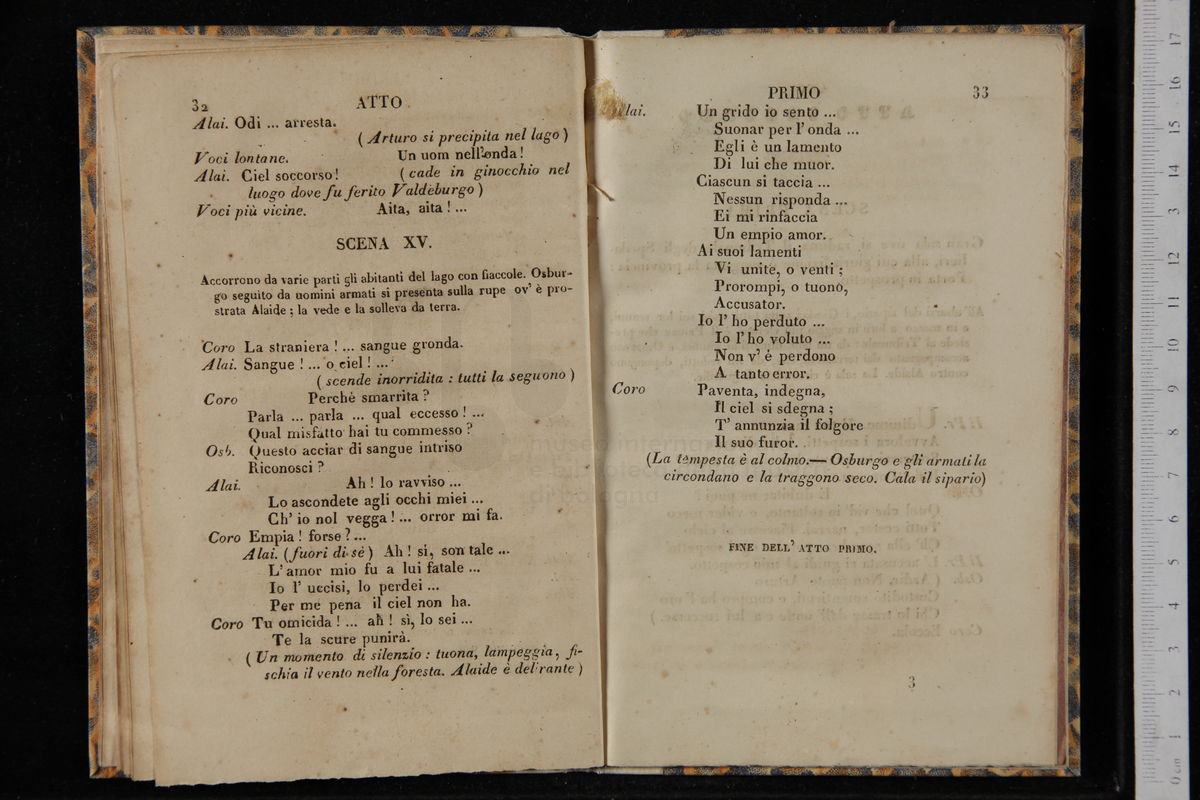 32 ATTO
Alai. Odi ... arresta.
( Arturo si precipita nel lago )
Voci lontane. Un uom nell'onda !
Alai. Ciel soccorso ! ( cade in ginocchio nel
luogo dove fu ferito Valdeburgo )
Voci più vicine. Aita, aita ! ...
SCENA XV.
Accorrono da varie parti gli abitanti del lago con fiaccole. Osbur-
go seguito da uomini armati si presenta sulla rupe ov' è pro-
strata Alaide ; la vede e la solleva da terra.
Coro La straniera ! ... sangue gronda.
Alai. Sangue ! ... o ciel ! ...
( scende inorridita : tutti la seguono )
Coro Perchè smarrita ?
Parla ... parla ... qual eccesso ! ...
Qual misfatto hai tu commesso ?
Osb. Questo acciar di sangue intriso
Riconosci ?
Alai. Ah ! lo ravviso ...
Lo ascondete agli occhi miei ...
Ch' io nol vegga ! ... orror mi fa.
Coro Empia ! forse ? ...
Alai. (fuori di sè ) Ah ! sì, son tale ...
L' amor mio fu a lui fatale ...
Io l' uccisi, lo perdei ...
Per me pena il ciel non ha.
Coro Tu omicida ! ... ah ! sì, lo sei ...
Te la scure punirà.
( Un momento di silenzio : tuona, lampeggia, fi-
schia il vento nella foresta. Alaide è delirante )
PRIMO 33
Alai. Un grido io sento ...
Suonar per l' onda ...
Egli è un lamento
Di lui che muor.
Ciascun si taccia ...
Nessun risponda ...
Ei mi rinfaccia
Un empio amor.
Ai suoi lamenti
Vi unite, o venti ;
Prorompi, o tuono,
Accusator.
Io l' ho perduto ...
Io l' ho voluto ...
Non v' é perdono
A tanto error.
Coro Paventa, indegna,
Il ciel si sdegna ;
T' annunzia il folgore
Il suo furor.
(La tempesta è al colmo.— Osburgo e gli armati la
circondano e la traggono seco. Cala il sipario)
FINE DELL' ATTO PRIMO.
3